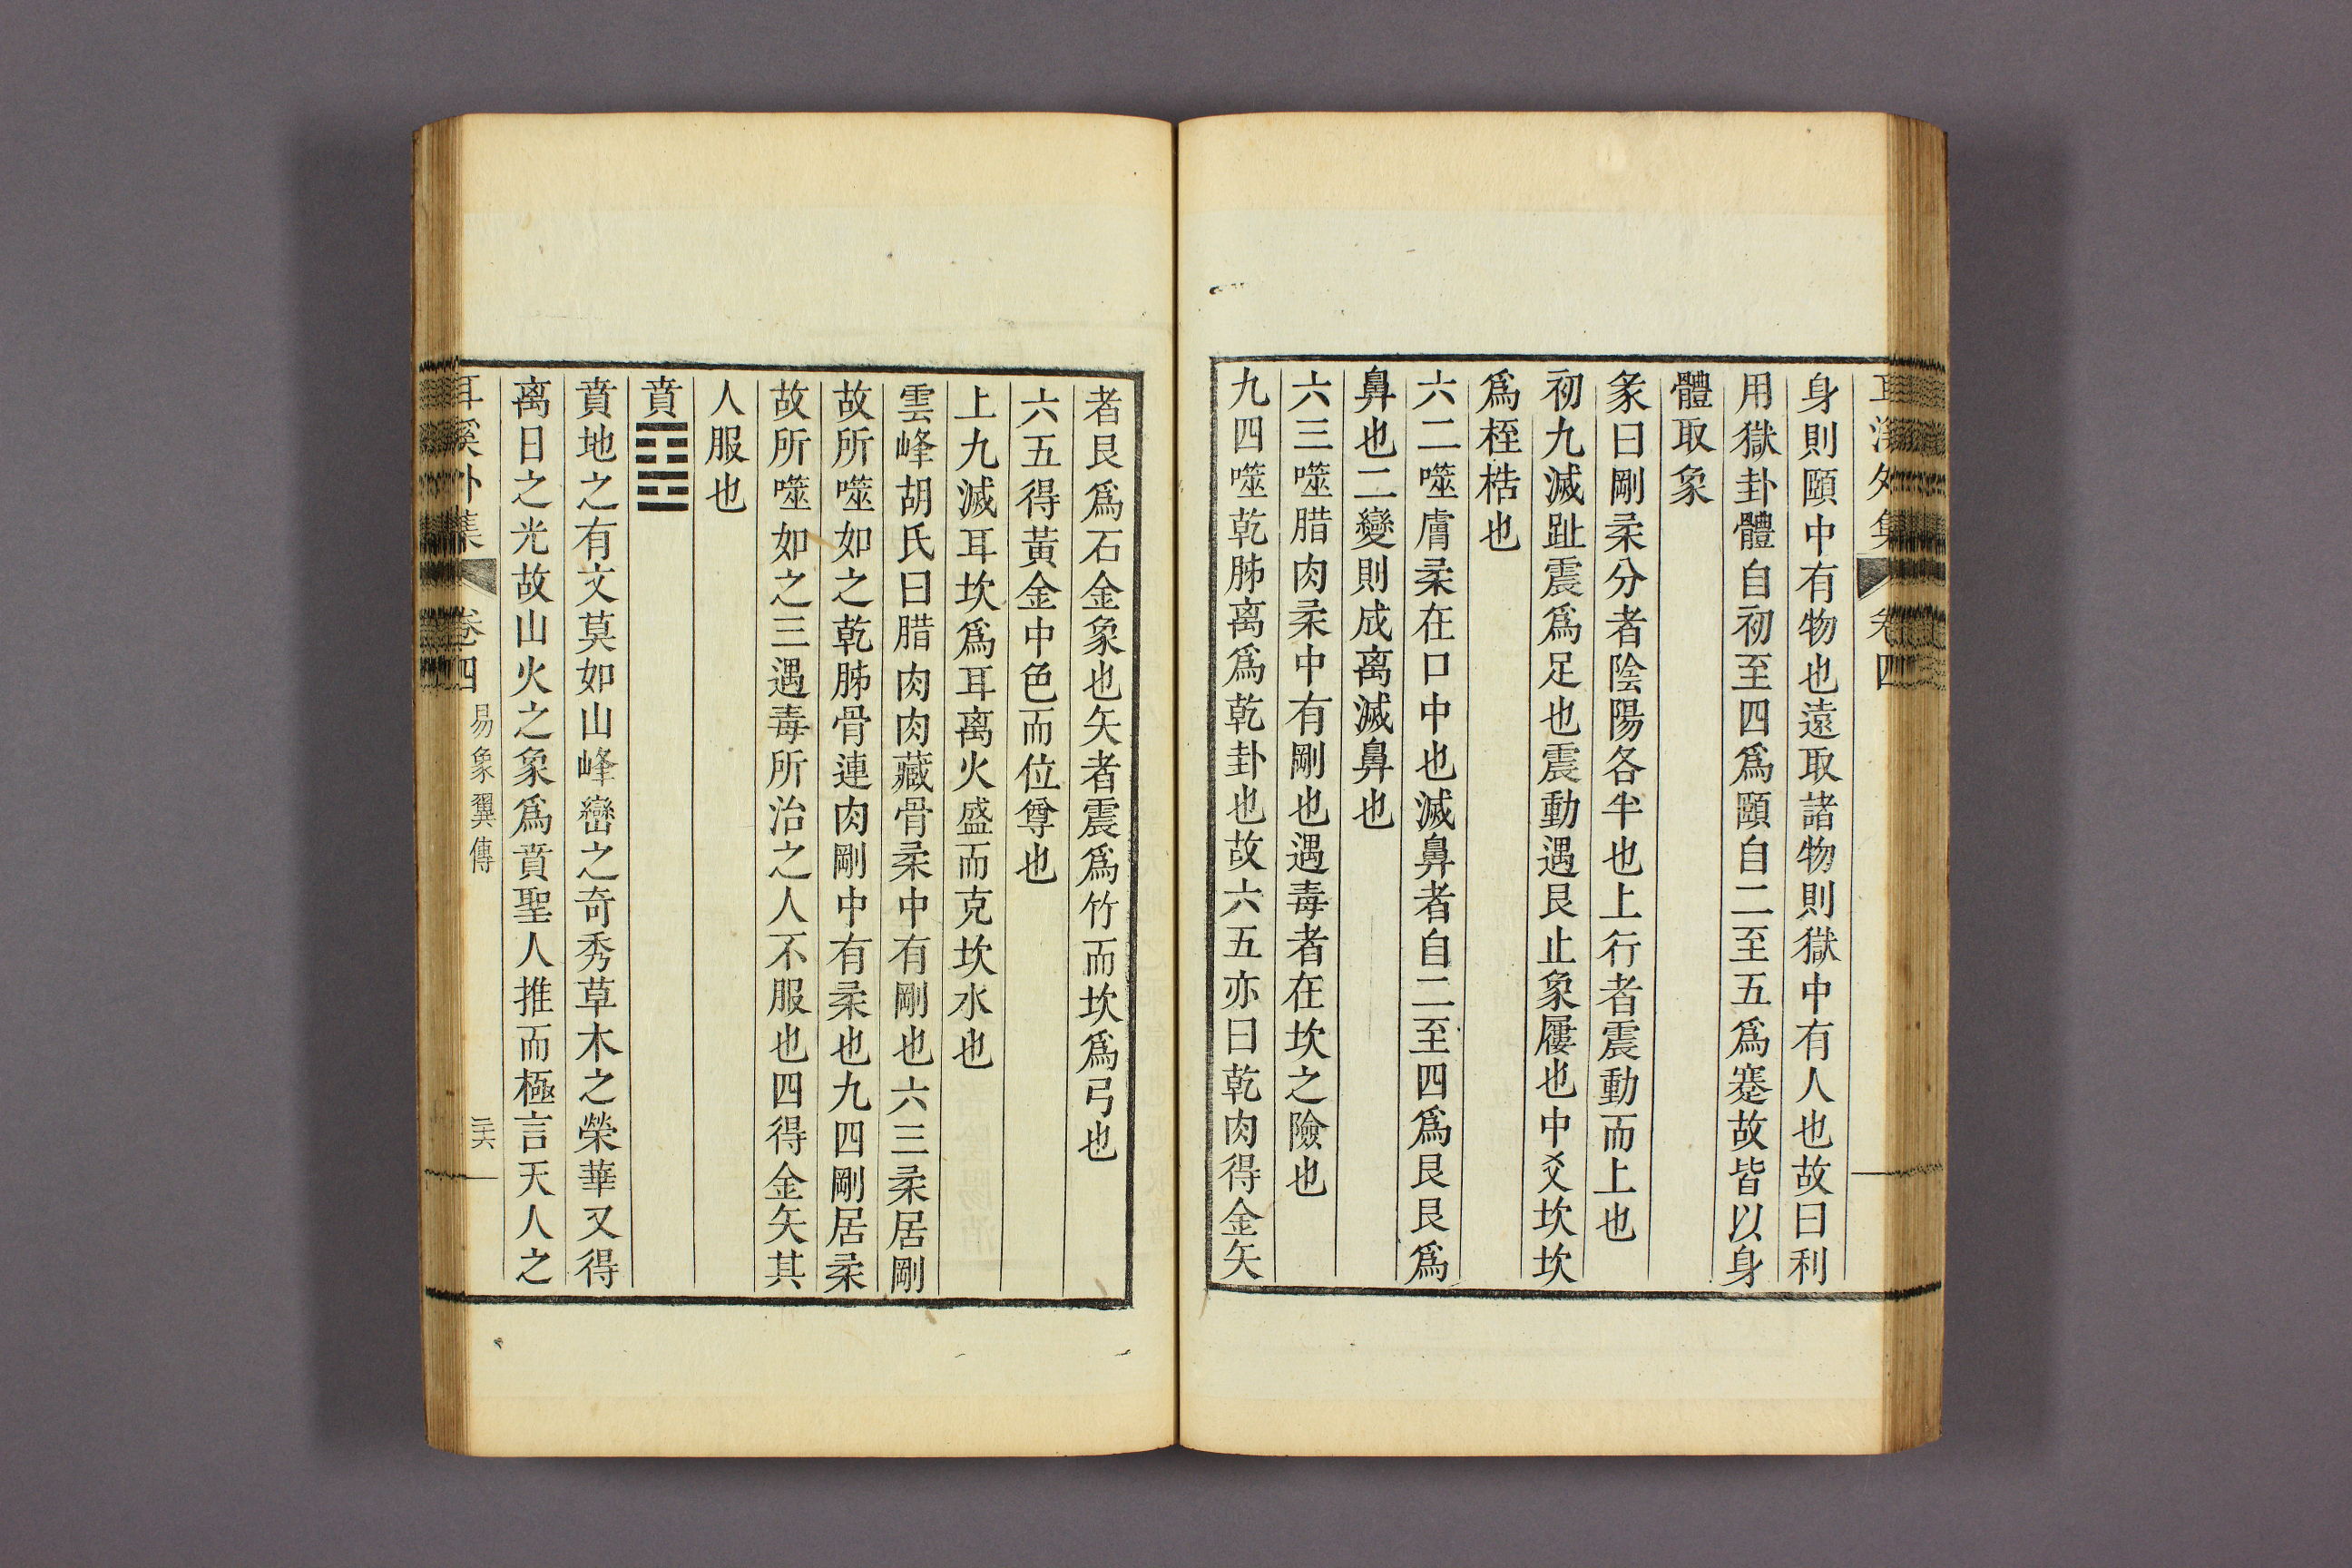 耳溪外集 卷四
身則頤中有物也遠取諸物則獄中有人也故曰利
用獄卦體自初至四爲頤自二至五爲蹇故皆以身
體取象
彖曰剛柔分者陰陽各半也上行者震動而上也
初九滅趾震爲足也震動遇艮止象屨也中爻坎坎
爲桎梏也
六二噬膚柔在口中也滅鼻者自二至四爲艮艮爲
鼻也二變則成离滅鼻也
六三噬腊肉柔中有剛也遇毒者在坎之險也
九四噬乾胏离爲乾卦也故六五亦曰乾肉得金矢
者艮爲石金象也矢者震爲竹而坎爲弓也
六五得黃金中色而位尊也
上九滅耳坎爲耳离火盛而克坎水也
雲峰胡氏曰腊肉肉藏骨柔中有剛也六三柔居剛
故所噬如之乾胏骨連肉剛中有柔也九四剛居柔
故所噬如之三遇毒所治之人不服也四得金矢其
人服也
賁䷕
賁地之有文莫如山峰巒之奇秀草木之榮華又得
离日之光故山火之象爲賁聖人推而極言天人之
耳溪外集 卷四 易象翼傳 三六